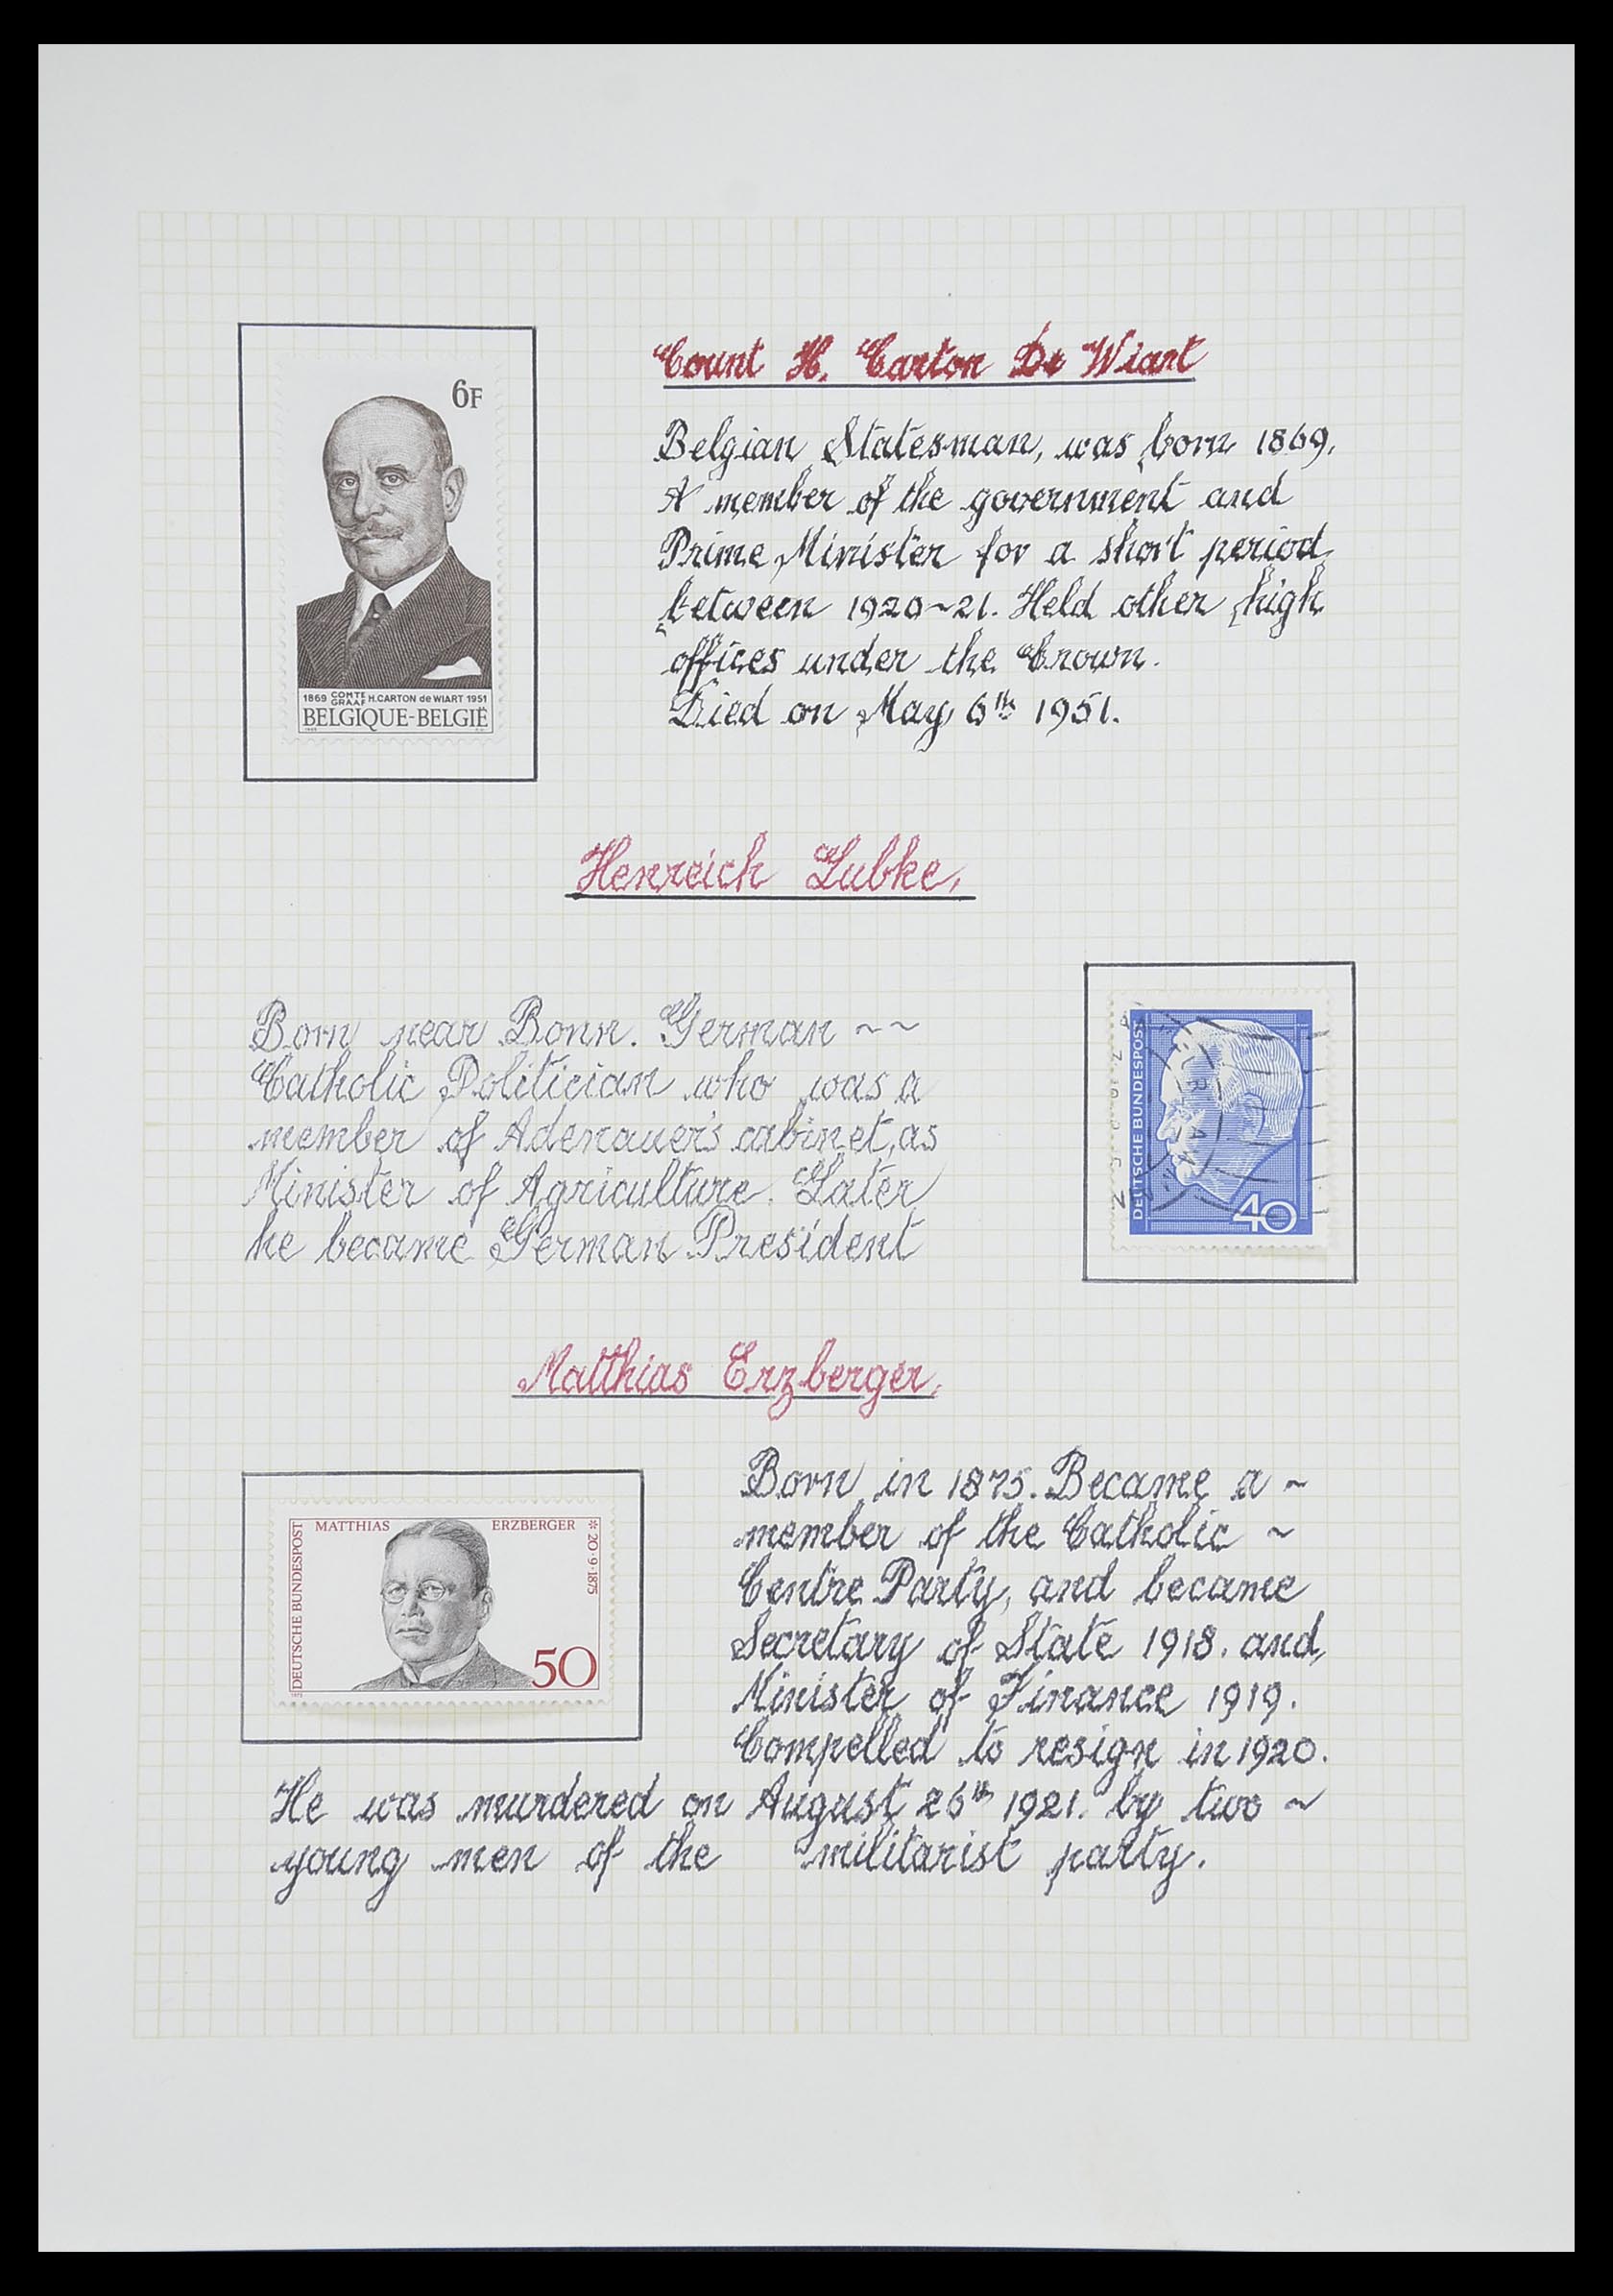 6F
1869 COMTE GRAAF H.CARTON de WIART 1951
BELGIQUE-BELGIË
Count H. Carton De Wiart
Belgian Statesman, was born 1869.
A member of the government and
Prime Minister for a short period
between 1920~21. Held other high
offices under the Crown.
Died on May 6th 1951.
Henreich Lubke.
Born near Bonn. German ~~
Catholic Politician who was a
member of Adenauer's cabinet, as
Minister of Agriculture. Later
he became German President
DEUTSCHE BUNDESPOST
40
Matthias Erzberger.
DEUTSCHE BUNDESPOST
MATTHIAS ERZBERGER
* 20·9·1875
50
Born in 1875. Became a ~
member of the Catholic ~
Centre Party, and became
Secretary of State 1918. and
Minister of Finance 1919.
Compelled to resign in 1920.
He was murdered on August 26th 1921. by two ~
young men of the militarist party.